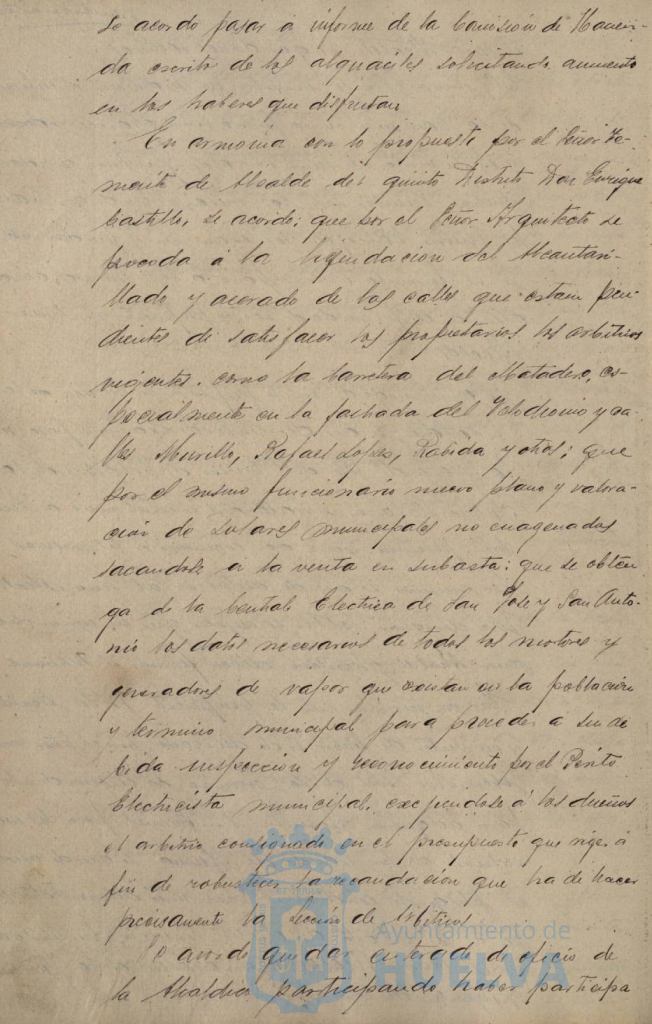 Se acordo pasar á informe de la Comision de Hacien-
da escrito de los alguaciles solicitando aumento
en los haberes que disfrutan
En armonia con lo propuesto por el Señor Te-
niente de Alcalde del quinto Distrito Don Enrique
Castillo, se acordo: que por el Señor Arquitecto se
proceda á la liquidacion del Alcantari-
llado y acerado de las calles que estan pen-
dientes de satisfacer los propietarios los arbitrios
vigentes. como la barrera del Matadero, es-
pecialmente en la fachada del Velodromo y ca-
lles Murillo, Rafael Lopez, Rabida y otras; que
por el mismo funcionario nuevo plano y valora-
ción de solares municipales no enagenados
sacandose á la venta en subasta: que se obten-
ga de la Central Electrica de San Jose y San Anto-
nio los datos necesarios de todos los motores y
generadores de vapor que existan en la población
y termino municipal para proceder a su de
bida inspeccion y reconocimiento por el Perito
Electricista municipal. exigiendose á los dueños
el arbitrio consignado en el presupuesto que rige. á
fin de robustecer la recaudación que ha de hacer
precisamente la Sección de Arbitrios
Se acordo quedar enterado de oficio de
la Alcaldia participando haber participa
Ayuntamiento de
HUELVA